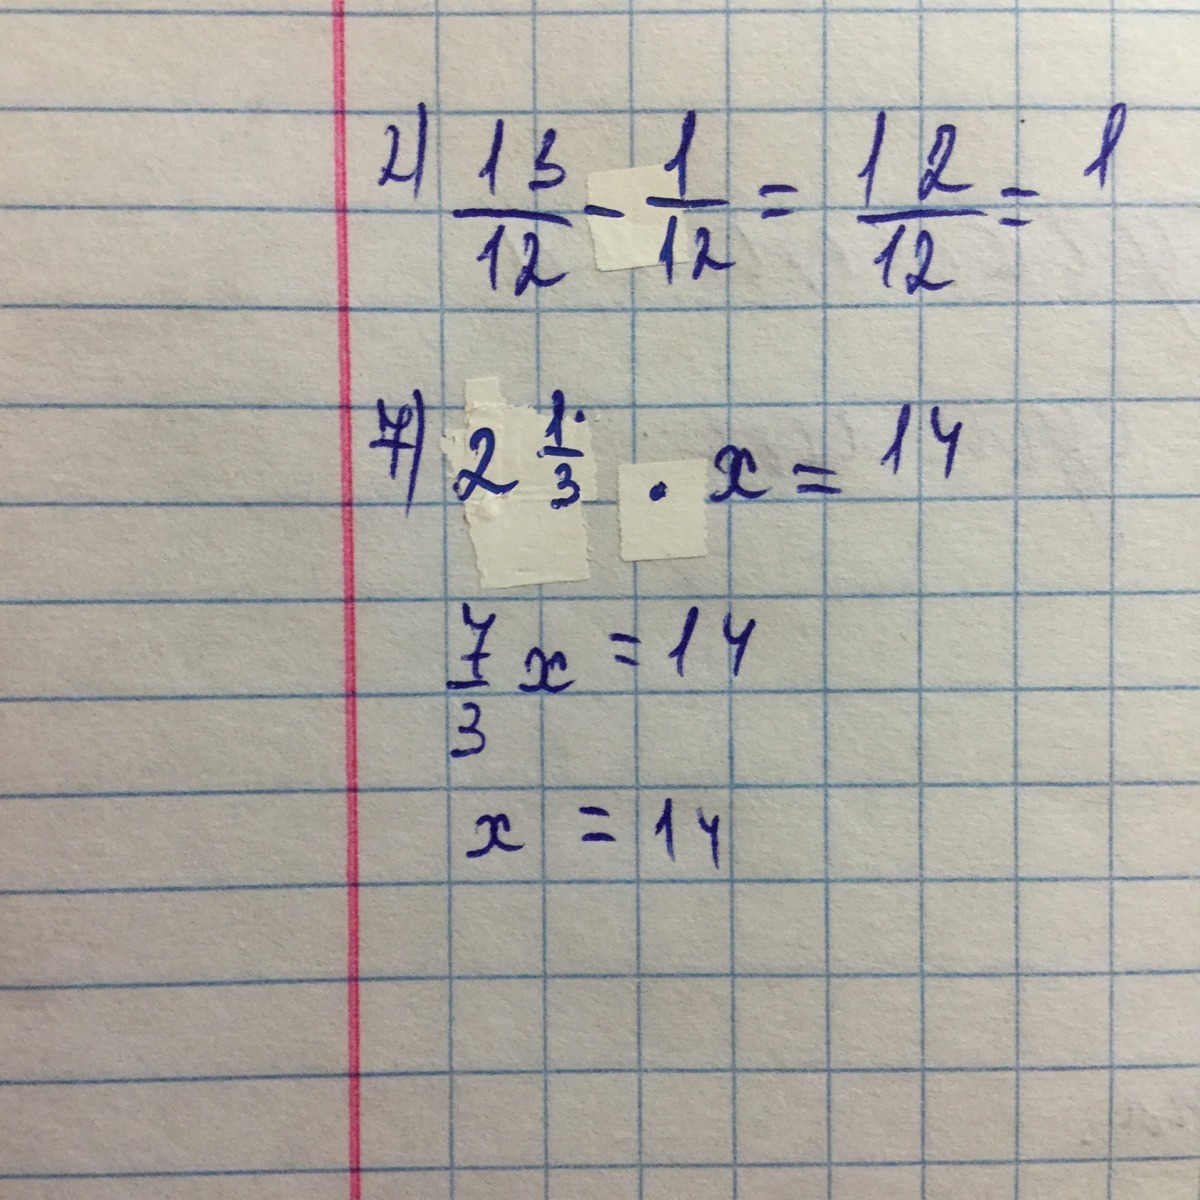 2) 13/12 - 1/12 = 12/12 = 1
7) 2 1/3 · x = 14
7/3 x = 14
x = 14